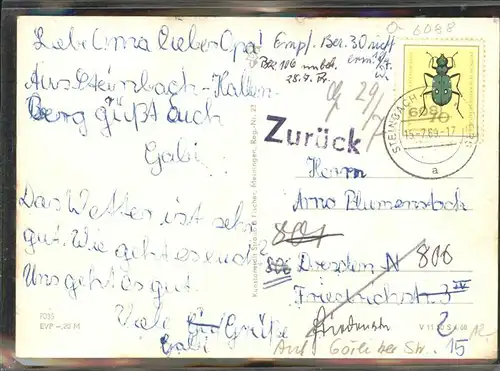 O-6088
Liebe Oma lieber Opa!
Aus Steinbach-Hallen-
Berg grüßt euch
Gabi.
Das Wetter ist sehr
gut. Wie geht es euch
Uns geht es gut.
Viele Grüße
Gabi
7035
EVP -,20 M
Kunstverlag Straub & Fischer, Meiningen, Reg.-Nr. 21
Empf. Ber. 30 nicht
Bez 186 unbek.
28.7.
29/7
Zurück
STEINBACH
609
15.-7.69.-17
a
70
Herrn
Arno Blumenstock
801
806 Dresden N 806
Friedrichstr. 3 IV
2
V 11 50 A 68
Auf Görlitzer Str. 15